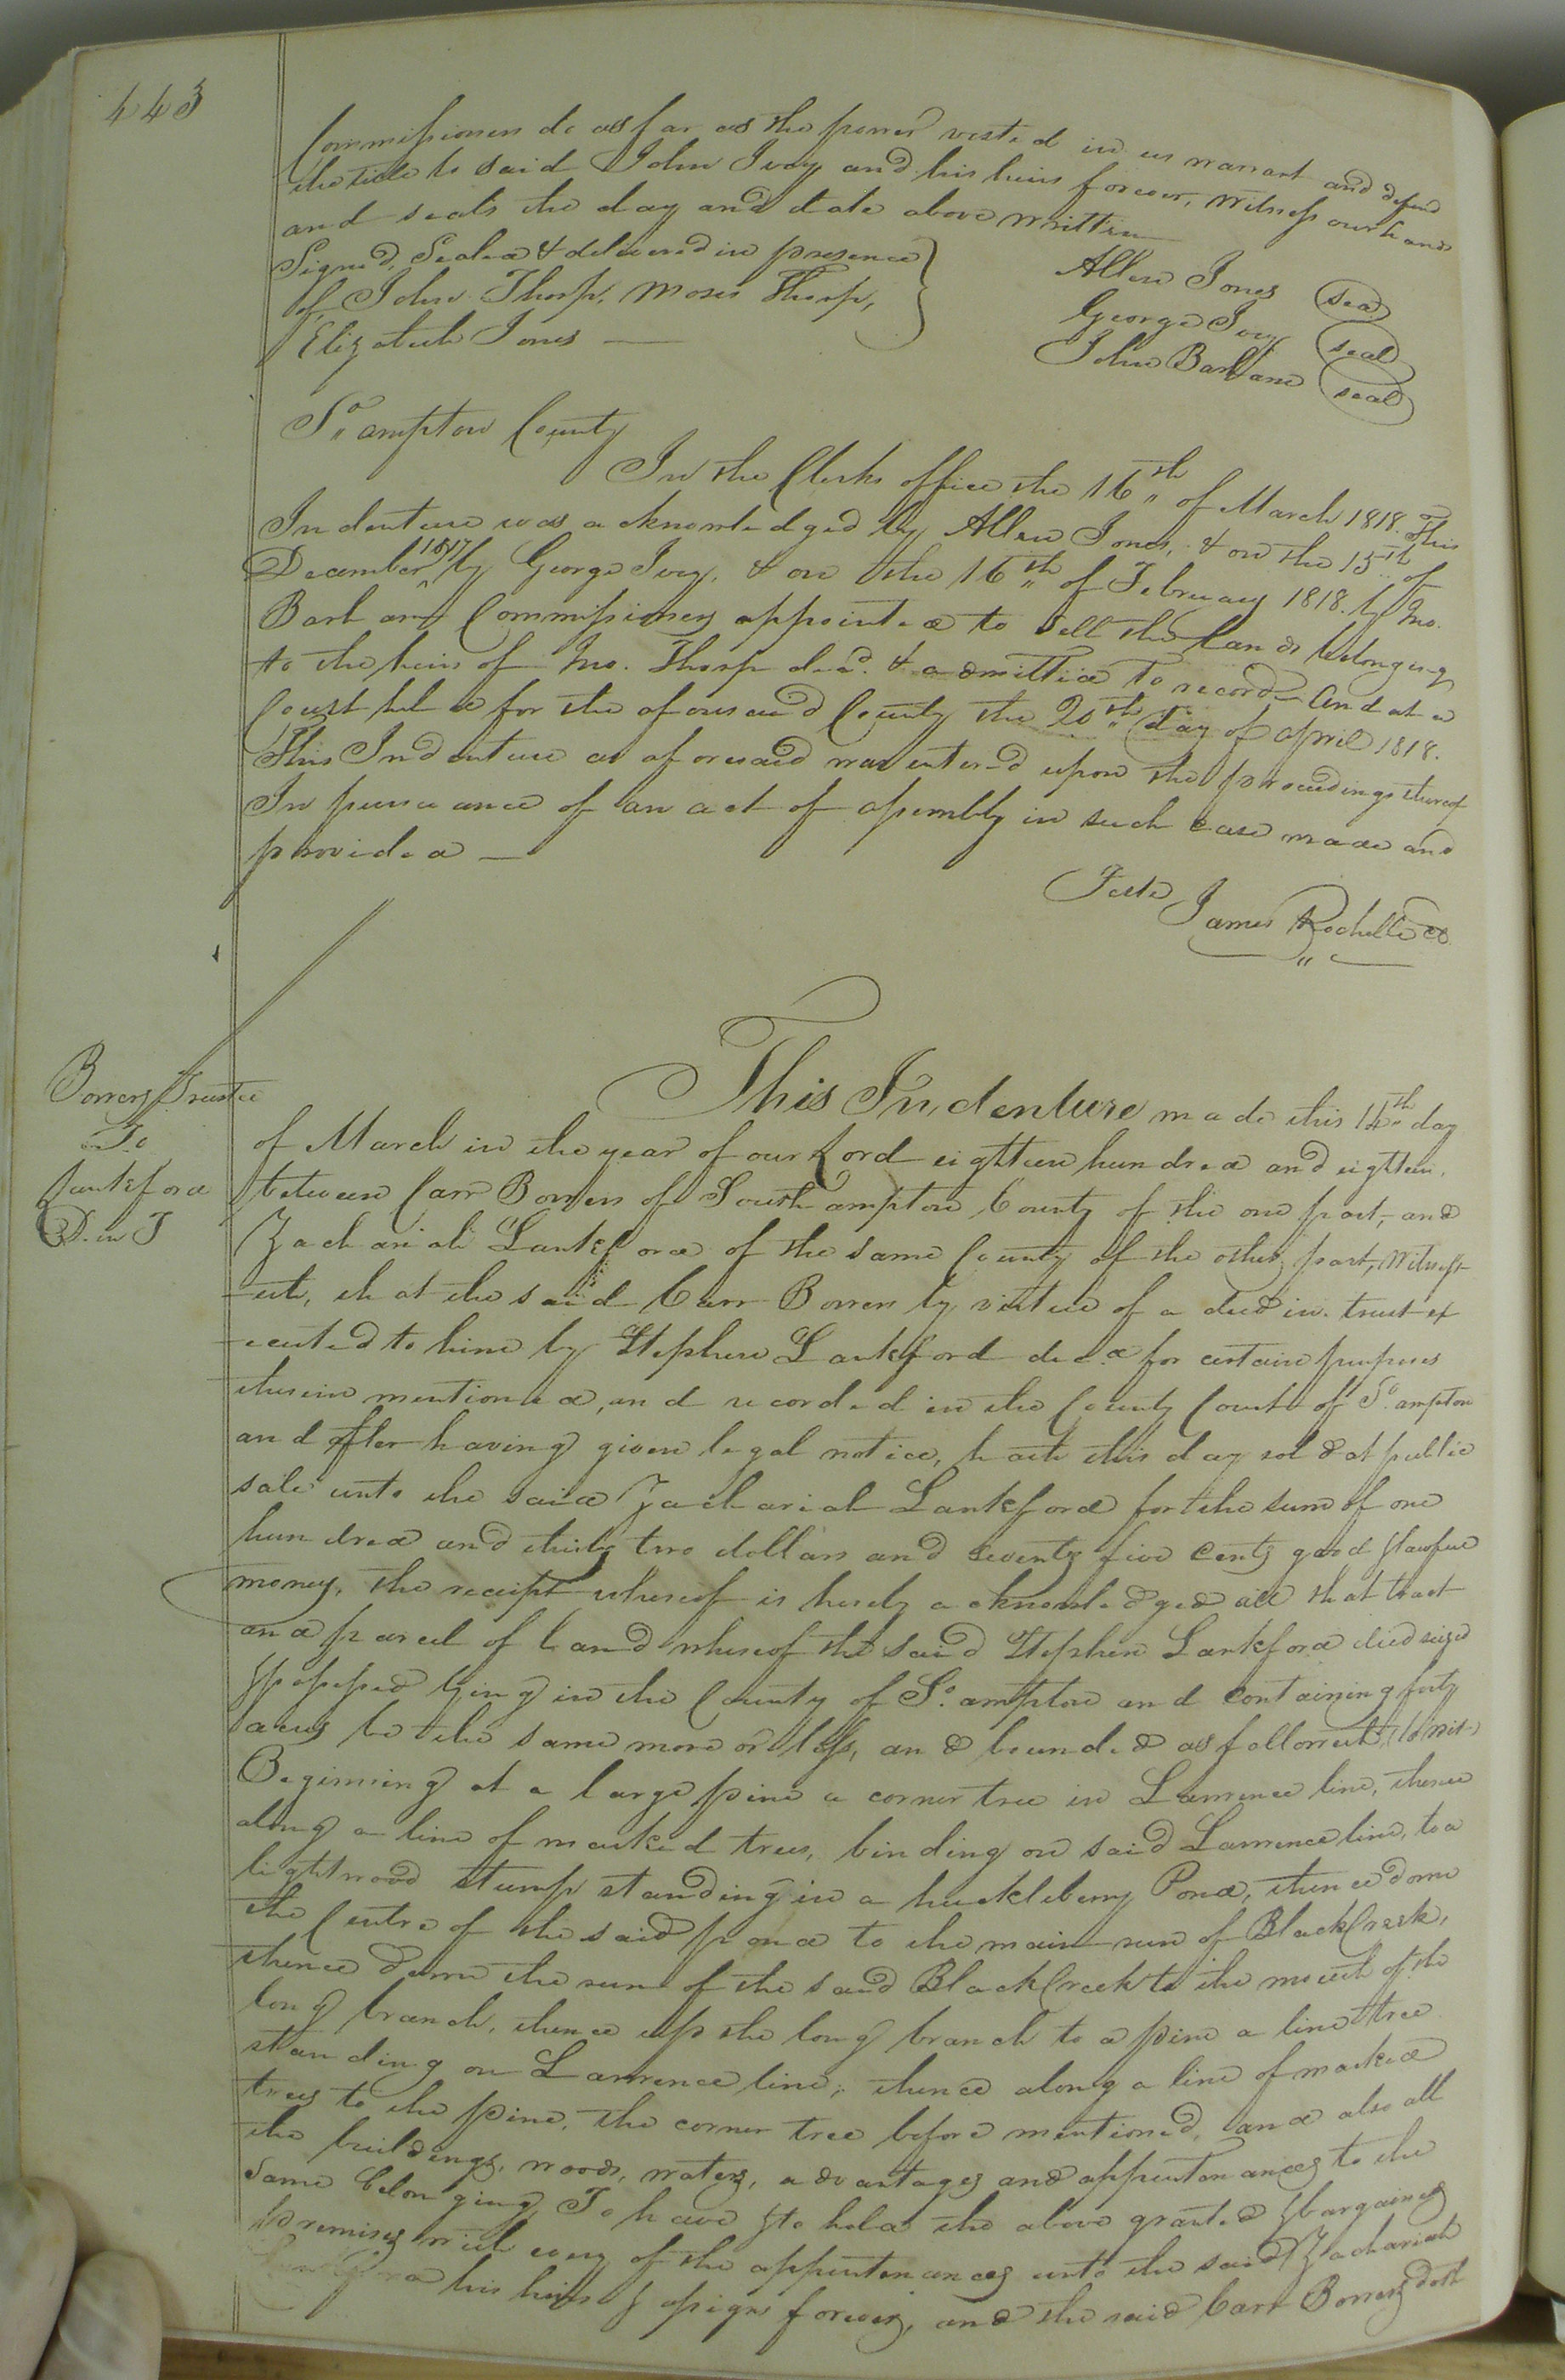 443
Commissioners do as far as the power vested in us warrant and defend
the title to said John Ivey and his heirs forever, Witness our hands
and seals the day and date above written
Signed, Sealed & delivered in presence
of, John Thorp, Moses Thorp,
Elizabeth Jones —
Allen Jones seal
George Ivey seal
John Barham seal
So. ampton County
In the Clerks office the 16th of March 1818. This
Indenture was acknowledged by Allen Jones, & on the 15th of
December 1817 by George Ivey, & on the 16th of February 1818. by Jno.
Barham Commissioners appointed to sell the lands belonging
to the heirs of Jno. Thorp decd. & admitted to record And at a
Court held for the aforesaid County the 20th day of April 1818.
This Indenture as aforesaid was entered upon the proceedings thereof
In pursuance of an act of assembly in such case made and
provided —
Teste
James Rochelle CC
Bowers Trustee
To
Lankford
D. in T
This Indenture made this 14th day
of March in the year of our Lord eighteen hundred and eighteen.
between Carr Bowers of Southampton County of the one part, and
Zachariah Lankford of the same County of the other part, Witness-
-eth, that the said Carr Bowers by virtue of a deed in trust ex
-ecuted to him by Stephen Lankford decd for certain purposes
therein mentioned, and recorded in the County Court of So. ampton
and after having given legal notice, hath this day sold at public
sale unto the said Zachariah Lankford for the sum of one
hundred and thirty two dollars and seventy five cents good & lawful
money, the receipt whereof is hereby acknowledged all that tract
and parcel of land whereof the said Stephen Lankford died seized
& possessed lying in the County of So. ampton and containing forty
acres be the same more or less, and bounded as followeth, (to wit)
Beginning at a large pine a corner tree in Lawrence line, thence
along a line of marked trees, binding on said Lawrence line, to a
lightwood stump standing in a huckleberry Pond, thence down
the Centre of the said pond to the main run of Black Creek,
thence down the run of the said Black Creek to the mouth of the
long branch, thence up the long branch to a pine a line tree
standing on Lawrence line; thence along a line of marked
trees to the pine, the corner tree before mentioned, and also all
the buildings, woods, waters, advantages and appurtenances to the
same belonging, To have & to hold the above granted & bargained
premises with every of the appurtenances unto the said Zachariah
Lankford his heirs & assigns forever, and the said Carr Bowers doth